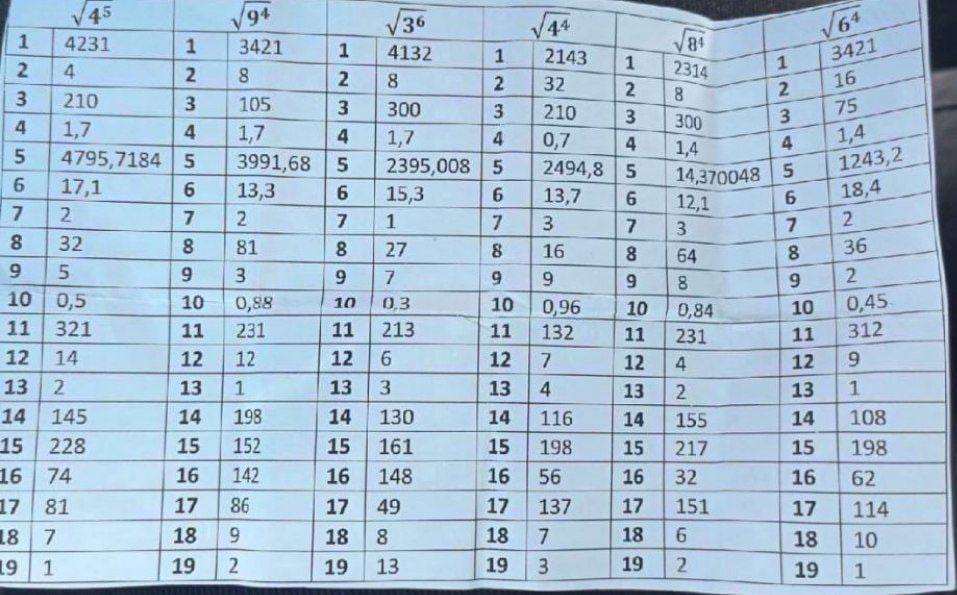 √4⁵ √9⁴ √3⁶ √4⁴ √8⁴ √6⁴
1 4231 1 3421 1 4132 1 2143 1 2314 1 3421
2 4 2 8 2 8 2 32 2 8 2 16
3 210 3 105 3 300 3 210 3 300 3 75
4 1,7 4 1,7 4 1,7 4 0,7 4 1,4 4 1,4
5 4795,7184 5 3991,68 5 2395,008 5 2494,8 5 14,370048 5 1243,2
6 17,1 6 13,3 6 15,3 6 13,7 6 12,1 6 18,4
7 2 7 2 7 1 7 3 7 3 7 2
8 32 8 81 8 27 8 16 8 64 8 36
9 5 9 3 9 7 9 9 9 8 9 2
10 0,5 10 0,88 10 0,3 10 0,96 10 0,84 10 0,45
11 321 11 231 11 213 11 132 11 231 11 312
12 14 12 12 12 6 12 7 12 4 12 9
13 2 13 1 13 3 13 4 13 2 13 1
14 145 14 198 14 130 14 116 14 155 14 108
15 228 15 152 15 161 15 198 15 217 15 198
16 74 16 142 16 148 16 56 16 32 16 62
17 81 17 86 17 49 17 137 17 151 17 114
18 7 18 9 18 8 18 7 18 6 18 10
19 1 19 2 19 13 19 3 19 2 19 1